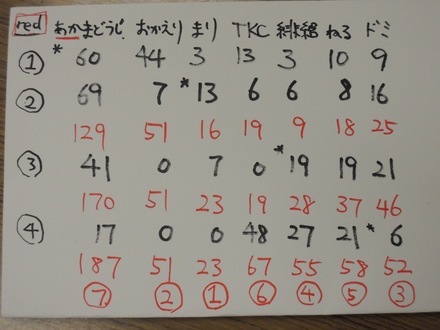 red あかまどうし おかえり まり TKC 緋緒 ねる ドミ
① *60 44 3 13 3 10 9
② 69 7 *13 6 6 8 16
129 51 16 19 9 18 25
③ 41 0 7 0 *19 19 21
170 51 23 19 28 37 46
④ 17 0 0 48 27 21 *6
187 51 23 67 55 58 52
⑦ ② ① ⑥ ④ ⑤ ③